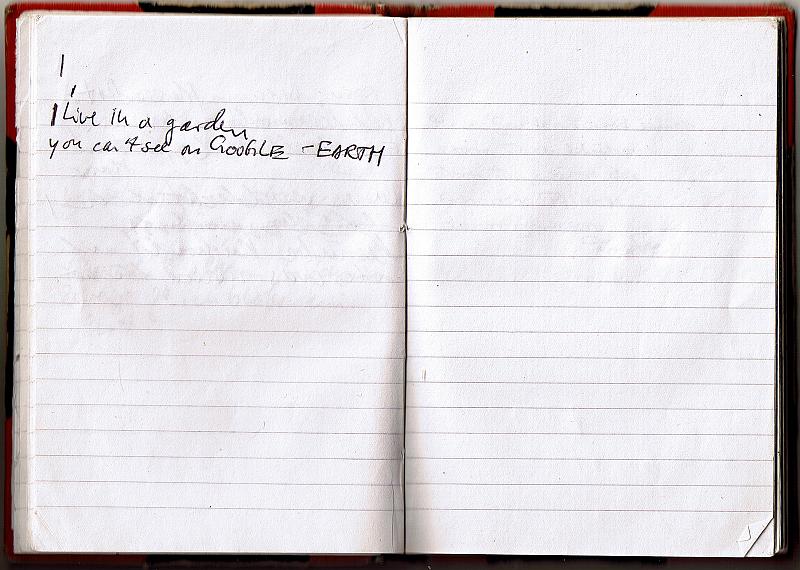 I
I Live in a garden
you can't see on GOOGLE - EARTH